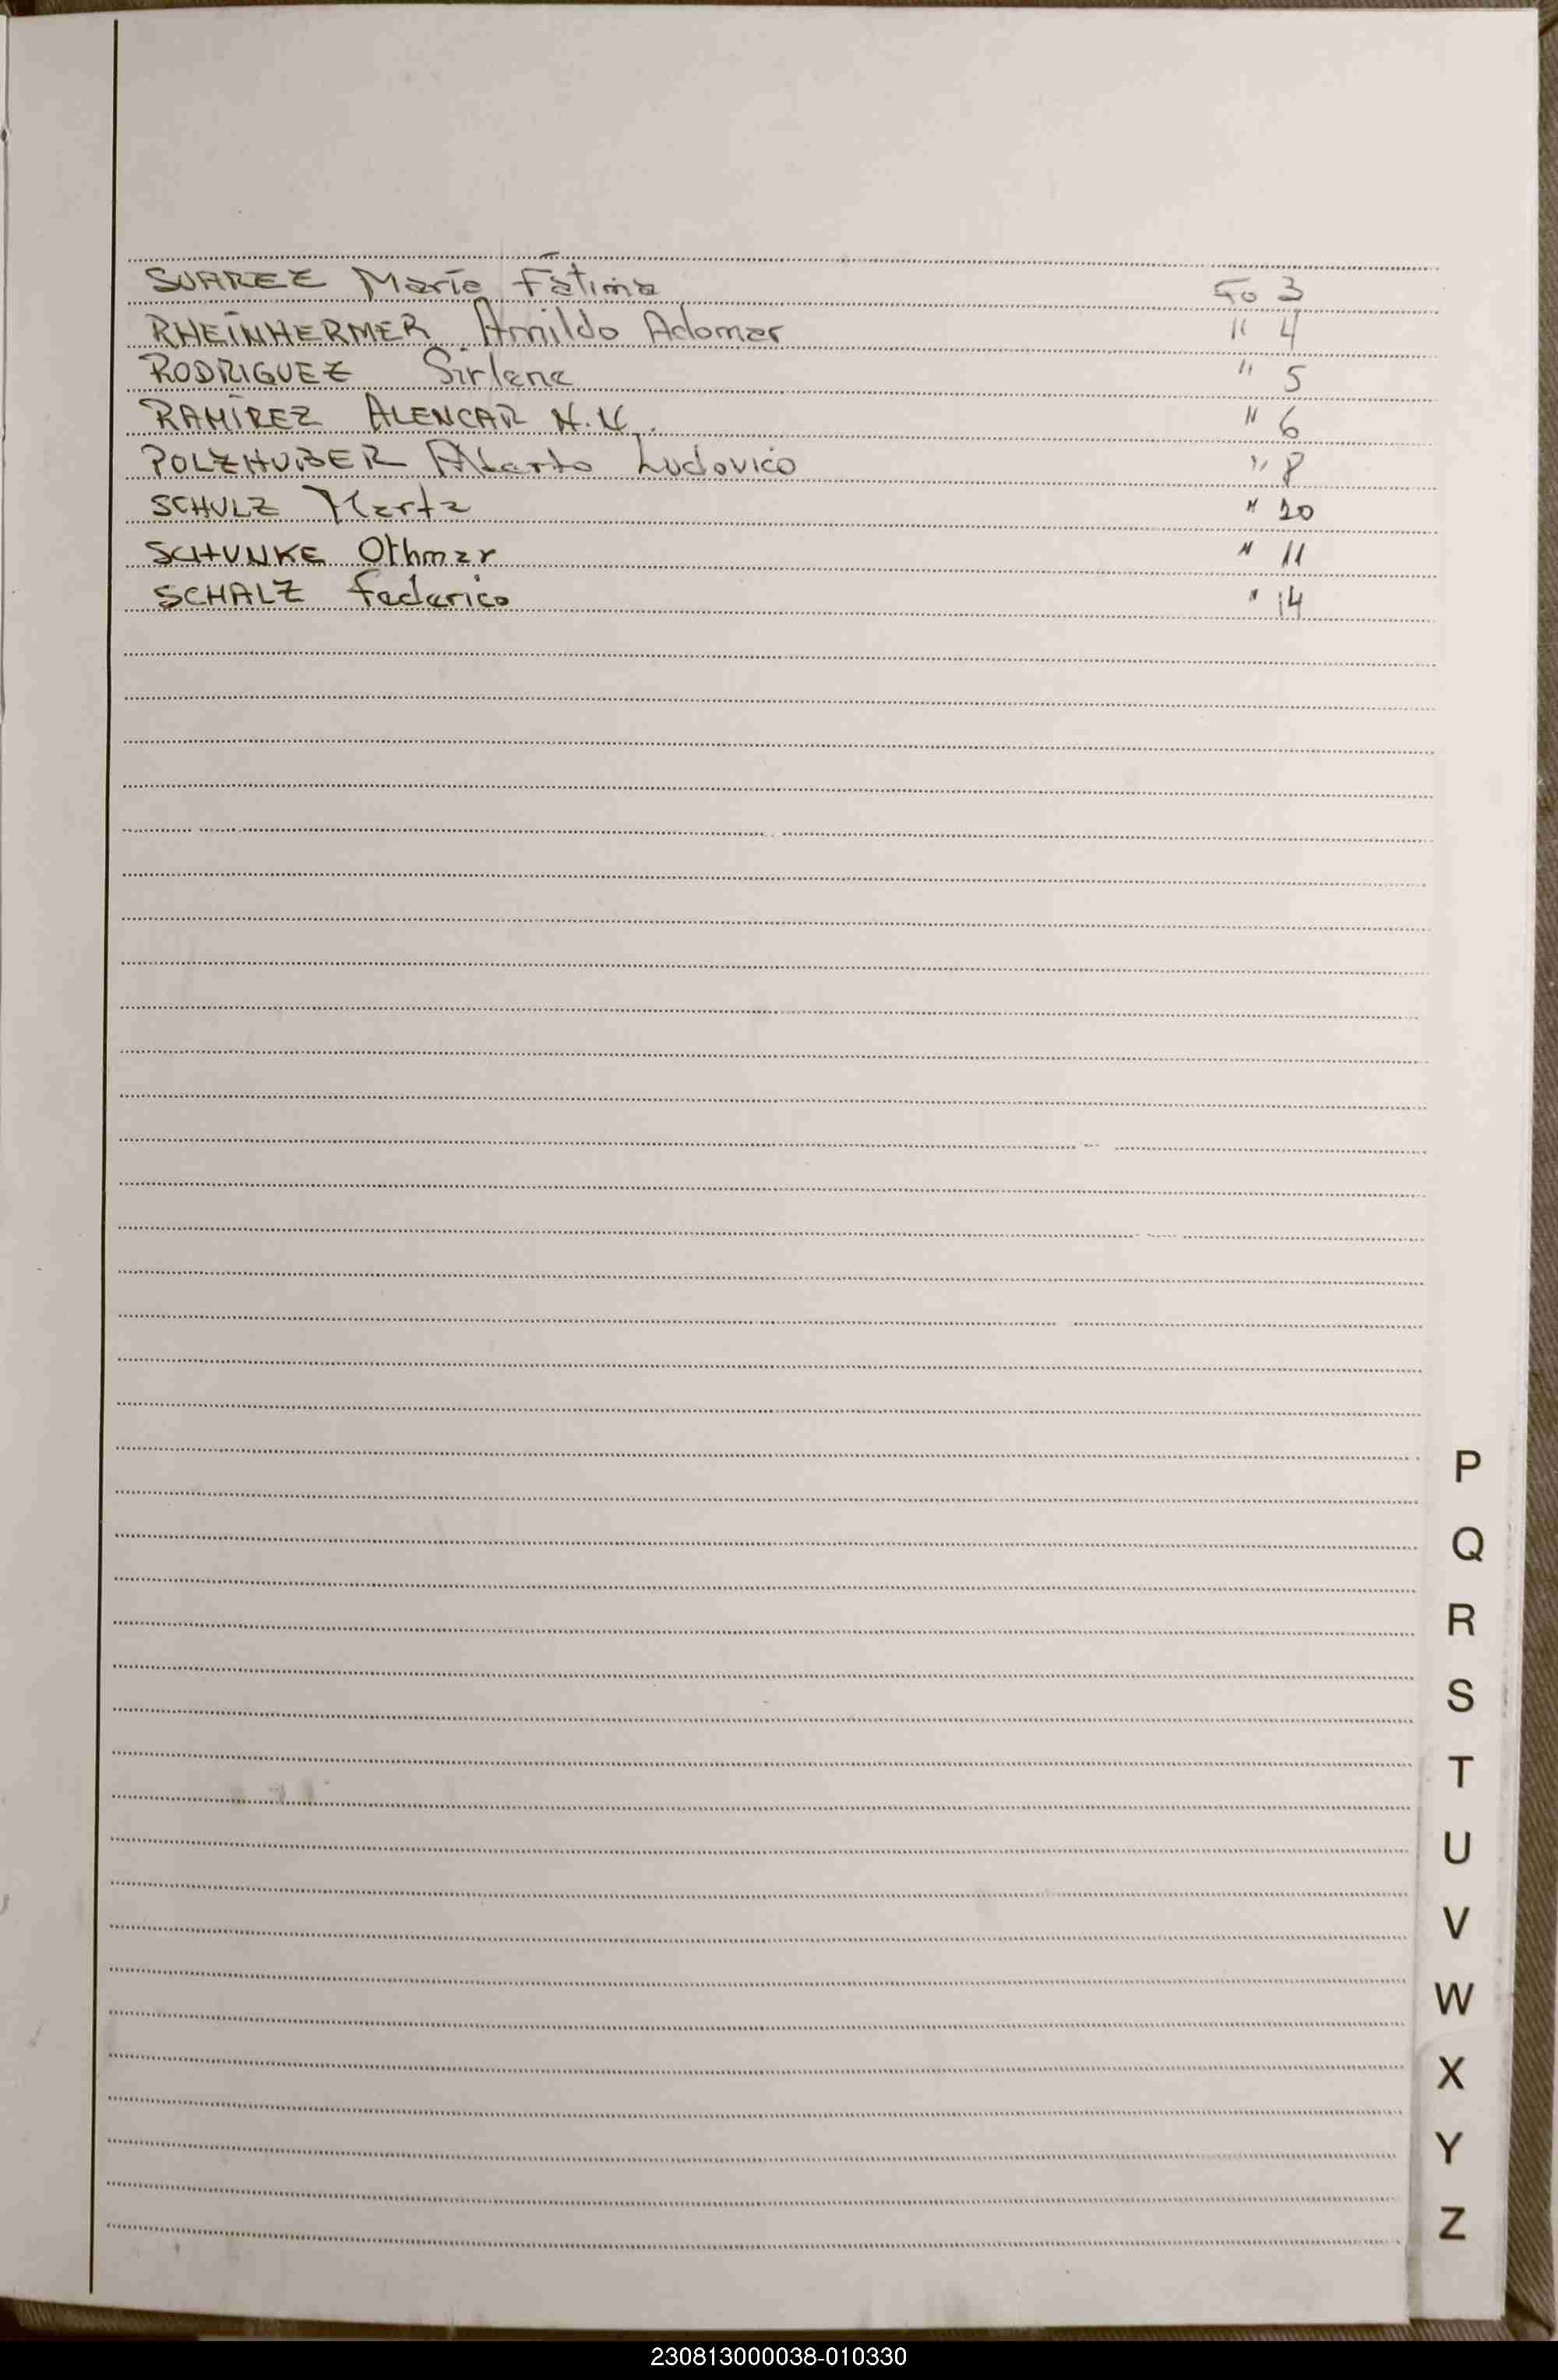 SUAREZ María Fátima Fo 3
RHEINHERMER Arnildo Adomar " 4
RODRIGUEZ Sirlene " 5
RAMÍREZ ALENCAR N.N. " 6
POLZHUBER Alberto Ludovico " 8
SCHULZ Marta " 10
SCHUNKE Othmar " 11
SCHALZ Federico " 14
P
Q
R
S
T
U
V
W
X
Y
Z
230813000038-010330